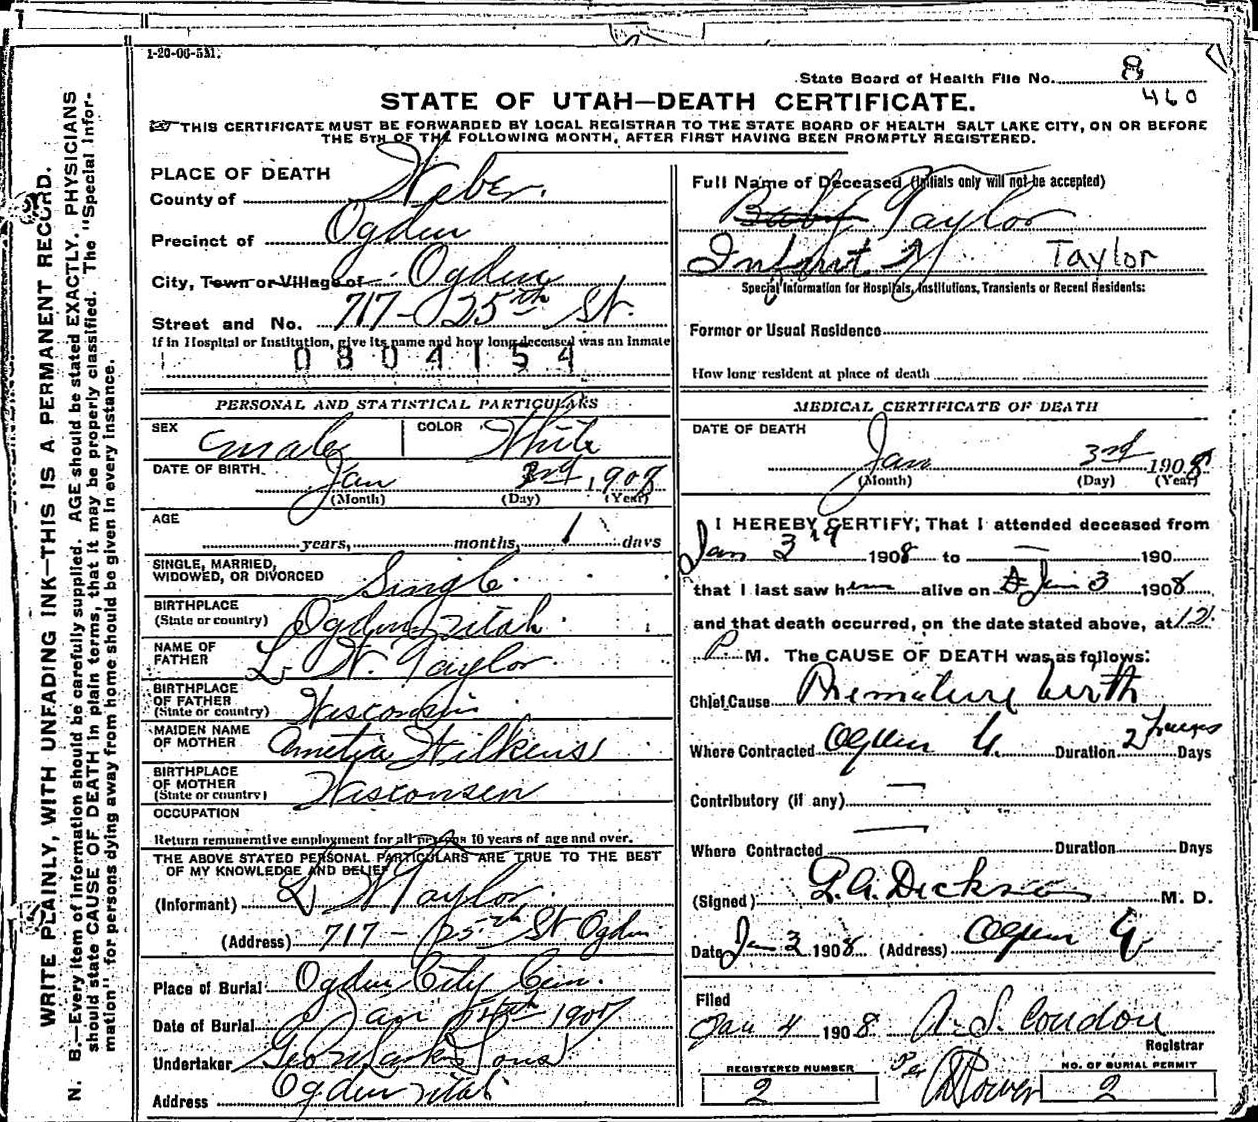 1-20-06-5M.
State Board of Health File No. 8
460
STATE OF UTAH—DEATH CERTIFICATE.
THIS CERTIFICATE MUST BE FORWARDED BY LOCAL REGISTRAR TO THE STATE BOARD OF HEALTH SALT LAKE CITY, ON OR BEFORE
THE 5TH OF THE FOLLOWING MONTH, AFTER FIRST HAVING BEEN PROMPTLY REGISTERED.
WRITE PLAINLY, WITH UNFADING INK—THIS IS A PERMANENT RECORD.
N. B.—Every item of information should be carefully supplied. AGE should be stated EXACTLY. PHYSICIANS
should state CAUSE OF DEATH in plain terms, that it may be properly classified. The "Special Infor-
mation" for persons dying away from home should be given in every instance.
PLACE OF DEATH
County of Weber.
Precinct of Ogden
City, Town or Village of Ogden
Street and No. 717 - 25th St.
If in Hospital or Institution, give its name and how long deceased was an inmate
0804154
PERSONAL AND STATISTICAL PARTICULARS
SEX male COLOR White
DATE OF BIRTH. Jan 3rd, 1908
(Month) (Day) (Year)
AGE
years, months, 1 days
SINGLE, MARRIED,
WIDOWED, OR DIVORCED Single
BIRTHPLACE
(State or country) Ogden Utah
NAME OF
FATHER L. W. Taylor
BIRTHPLACE
OF FATHER
(State or country) Wisconsin
MAIDEN NAME
OF MOTHER Ametia Wilkens
BIRTHPLACE
OF MOTHER
(State or country) Wisconsen
OCCUPATION
Return remunerative employment for all persons 10 years of age and over.
THE ABOVE STATED PERSONAL PARTICULARS ARE TRUE TO THE BEST
OF MY KNOWLEDGE AND BELIEF
(Informant) L W Taylor
(Address) 717 - 25th St Ogden
Place of Burial Ogden City Cem.
Date of Burial Jan 1907
Undertaker Sons
Address Ogden Utah
Full Name of Deceased (Initials only will not be accepted)
Baby Taylor
Infant Taylor
Special Information for Hospitals, Institutions, Transients or Recent Residents:
Former or Usual Residence
How long resident at place of death
MEDICAL CERTIFICATE OF DEATH
DATE OF DEATH
Jan 3rd 1908
(Month) (Day) (Year)
I HEREBY CERTIFY, That I attended deceased from
Jan 3 1908 to — 190
that I last saw him alive on Jan 3 1908
and that death occurred, on the date stated above, at 12
P M. The CAUSE OF DEATH was as follows:
Chief Cause Premature birth
Where Contracted Ogden U. Duration 2 hours Days
Contributory (if any) —
Where Contracted — Duration Days
(Signed) Dickson M. D.
Date Jan 3 1908 (Address) Ogden U.
Filed
Jan 4 1908 A. S. Condon
Registrar
Per Power
REGISTERED NUMBER
2
NO. OF BURIAL PERMIT
2